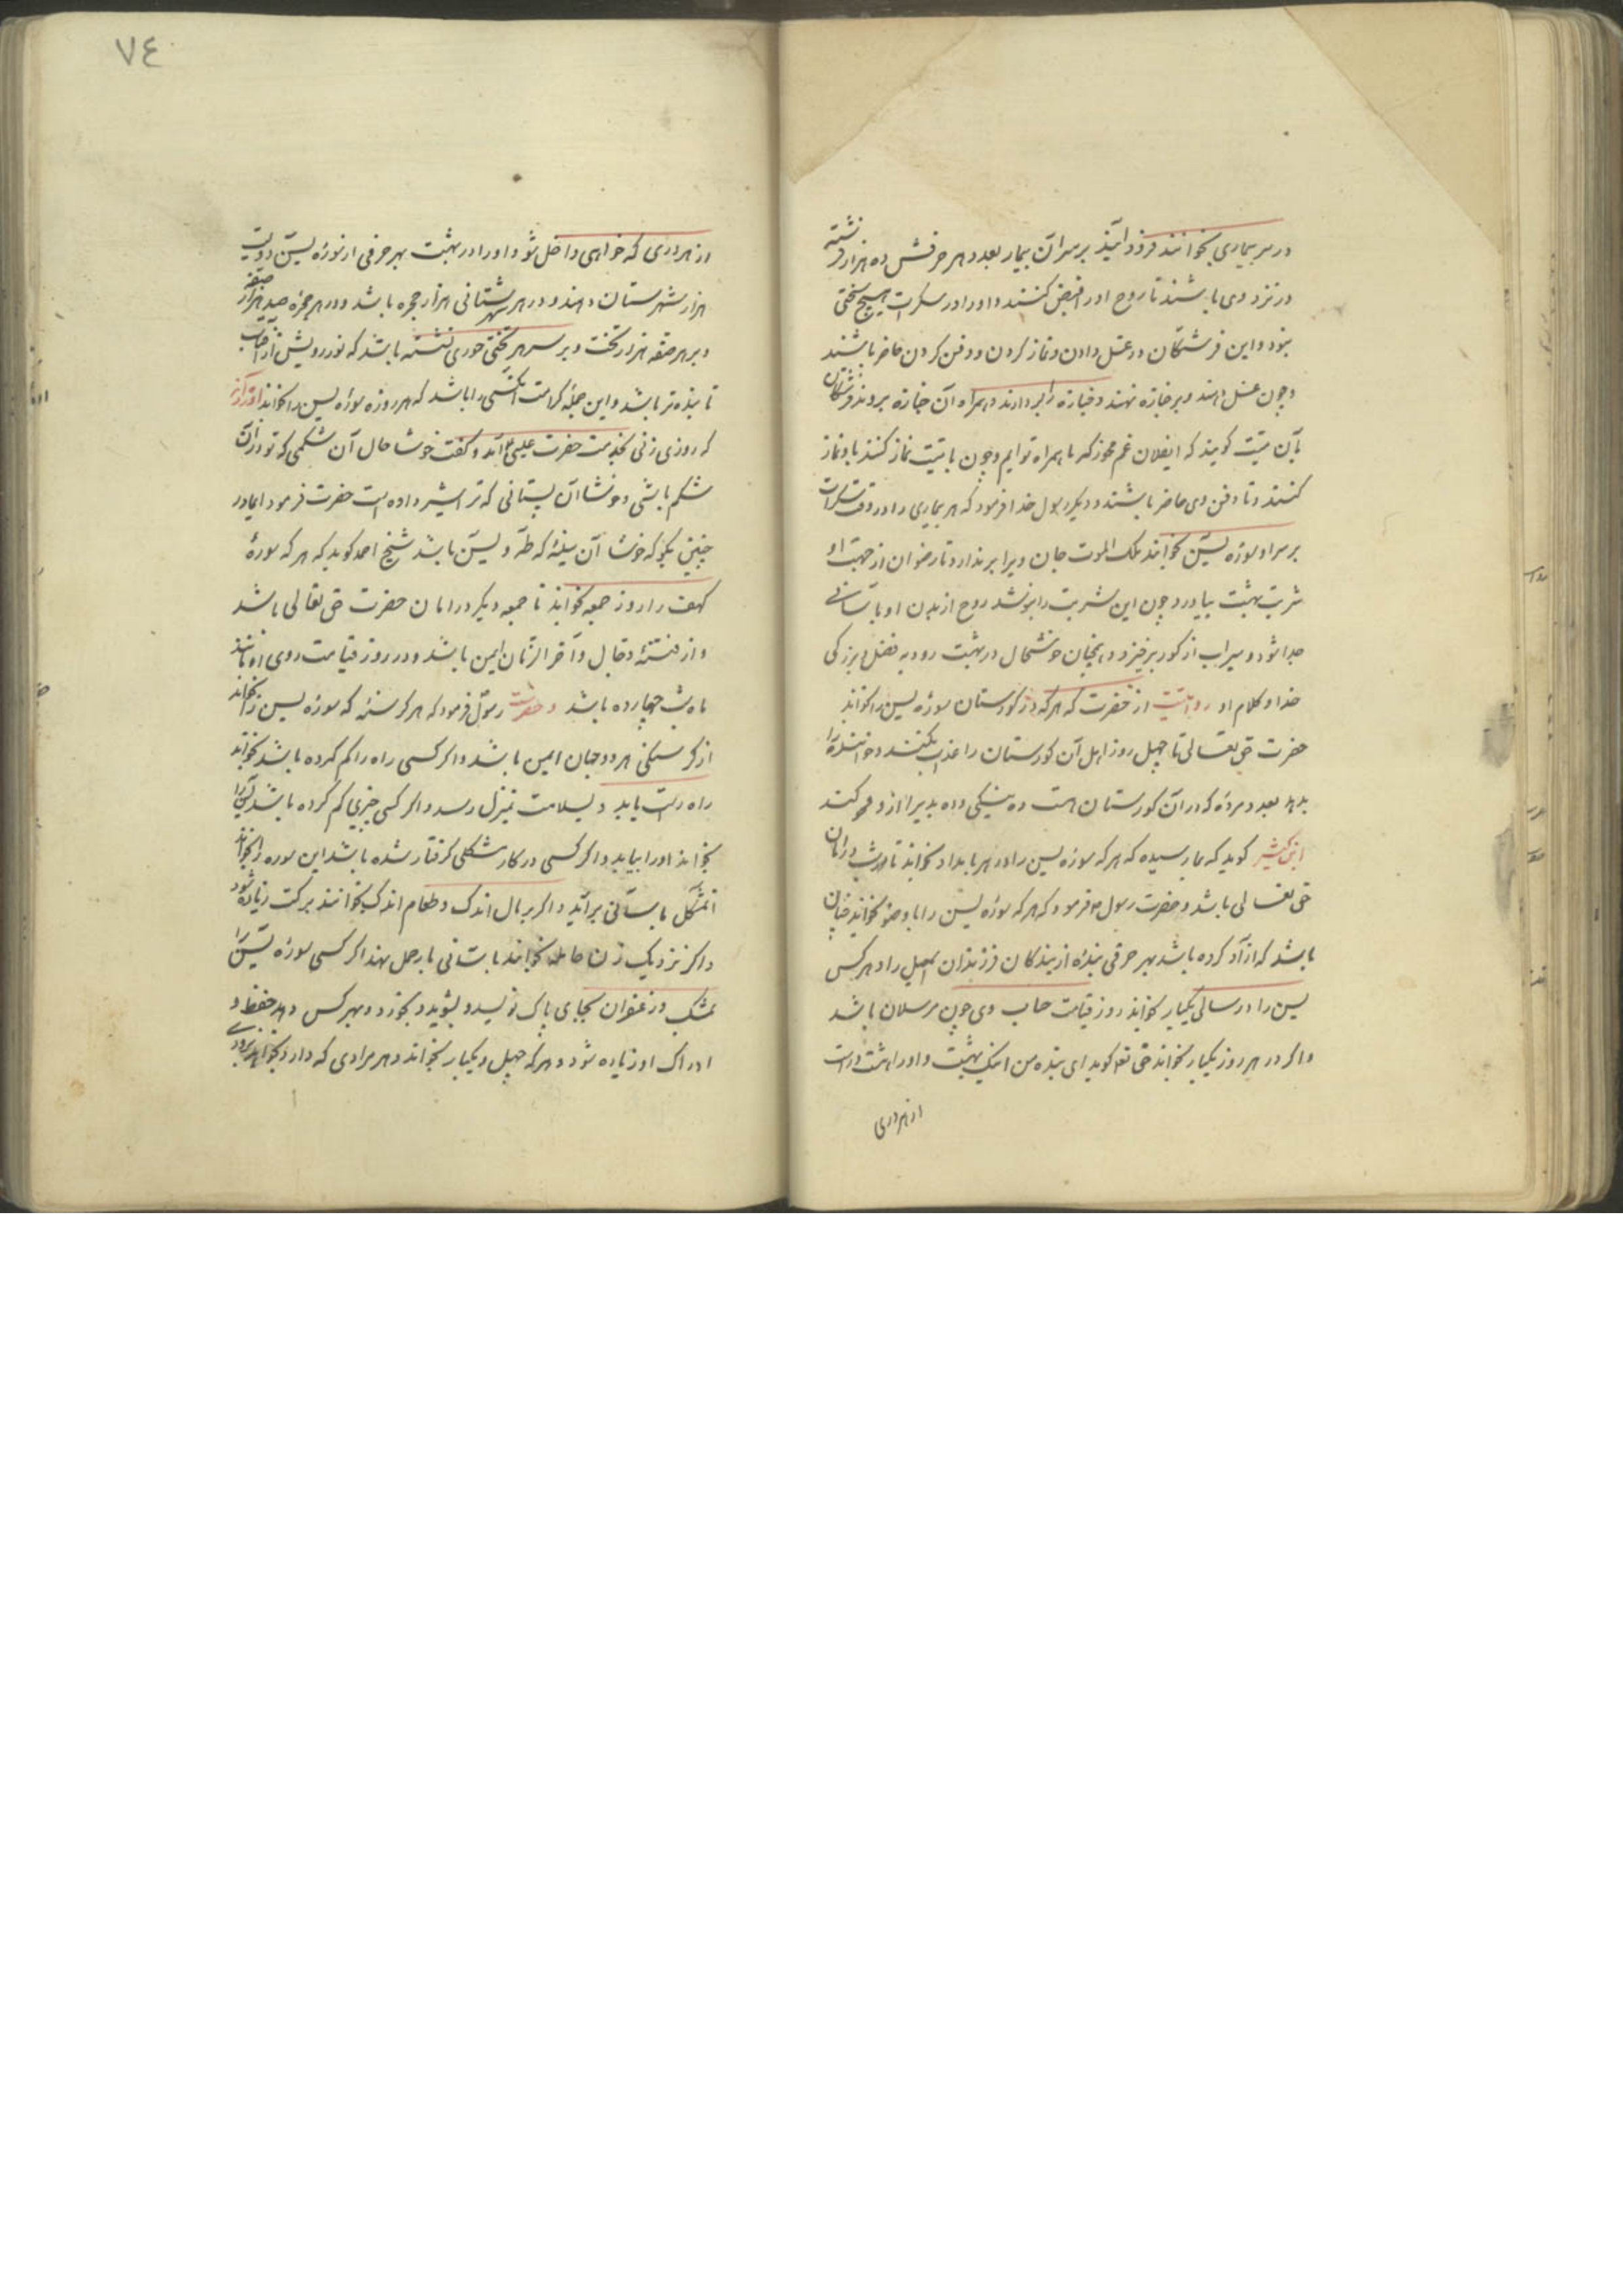 در سر بیماری بخوانند فرود آیند بر سر آن بیمار بعدد هر حرفش ده هزار فرشته
در نزد وی باشند تا روح او را قبض کنند و او را در سکرات هیچ سختی
نبود و این فرشتگان در غسل دادن و نماز کردن و دفن کردن حاضر باشند
و چون غسل دهند و بر جنازه نهند و جنازه را بردارند و همراه آن جنازه بروند فرشتگان
بآن میّت کویند که ایفلان غم مخور که ما همراه توایم و چون با میّت نماز کنند با و نماز
کنند و تا دفن وی حاضر باشند و دیکر رسول خدا فرمود که هر بیماری را در وقت سکرات
بر سر او سوره یسۤ بخوانند ملک الموت جان ویرا بر ندارد تا رضوان از جهت او
شربت بهشت بیاورد چون این شربت را بنوشد روح از بدن او بآسانی
جدا شود و سیراب از کور برخیزد و همچنان خوشحال در بهشت رود به فضل و بزرکی
خدا و کلام او روایتست از حضرت که هرکه در کورستان سوره یس را بخواند
حضرت حق تعالی تا چهل روز اهل آن کورستان را عذاب نکند و خواننده را
بدهد بعدد مرده که در آن کورستان است ده نیکی و ده بدی را از و محو کند
ابن کثیر کوید که بما رسیده که هرکه سوره یس را در هر بامداد بخواند تا شب در امان
حق تعالی باشد و حضرت رسول م فرمود که هرکه سوره یسۤ را با وضو بخواند چنان
باشد که ازاد کرده باشد بهر حرفی بنده از بندکان فرزندان اسمعیل را و هرکس
یس را در سالی یکبار بخواند روز قیامت حساب وی چون مرسلان باشد
و اکر در هر روز یکبار بخواند حق تع کوید ای بنده من اینک بهشت و او را هشت در است
از هر دری
٧٤
از هر دری که خواهی داخل شو و او را در بهشت بهر حرفی از سوره یسۤ دویست
هزار شهرستان دهند و در هر شهرستانی هزار حجره باشد و در هر حجره صد هزار صفه
و بر هر صفه هزار تخت و بر سر هر تختی حوری نشسته باشد که نور رویش از آفتاب
تابنده تر باشد و این جمله کرامت آنکسی را باشد که هر روزه سوره یس را بخواند آورده اند
که روزی زنی بخدمت حضرت عیسی م آمد و کفت خوشا حال آن شکمی که تو در آن
شکم باشی و خوشا آن پستانی که ترا شیر داده است حضرت فرمود ایمادر
چنین مکو که خوشا آن سینه که طه و یسۤ باشد شیخ احمد کوید که هرکه سوره
کهف را روز جمعه بخواند تا جمعه دیکر در امان حضرت حق تعالی باشد
و از فتنه دجال و آخر الزمان ایمن باشد و در روز قیامت روی او مانند
ماه شب چهارده باشد و حضرت رسول فرمود که هر کرسنه که سوره یس را بخواند
از کرسنکی هر دو جهان ایمن باشد و اکر کسی راه را کم کرده باشد بخواند
راه راست یابد و بسلامت بمنزل رسد و اکر کسی چیزی کم کرده باشد یسۤ را
بخواند او را بیابد و اکر کسی در کار مشکلی کرفتار شده باشد این سوره را بخواند
آنمشکل بآسانی برآید و اکر بر مال اندک و طعام اندک بخوانند برکت زیاده شود
و اکر نزدیک زن حامله بخوانند بآسانی بار حمل نهد اکر کسی سوره یسۤ را
بمشک و زعفران بجای پاک نویسد و بشوید و بخورد و بهر کس دهد حفظ و
ادراک او زیاده شود و هرکه چهل و یکبار بخواند و هر مرادی که دارد بخواهد